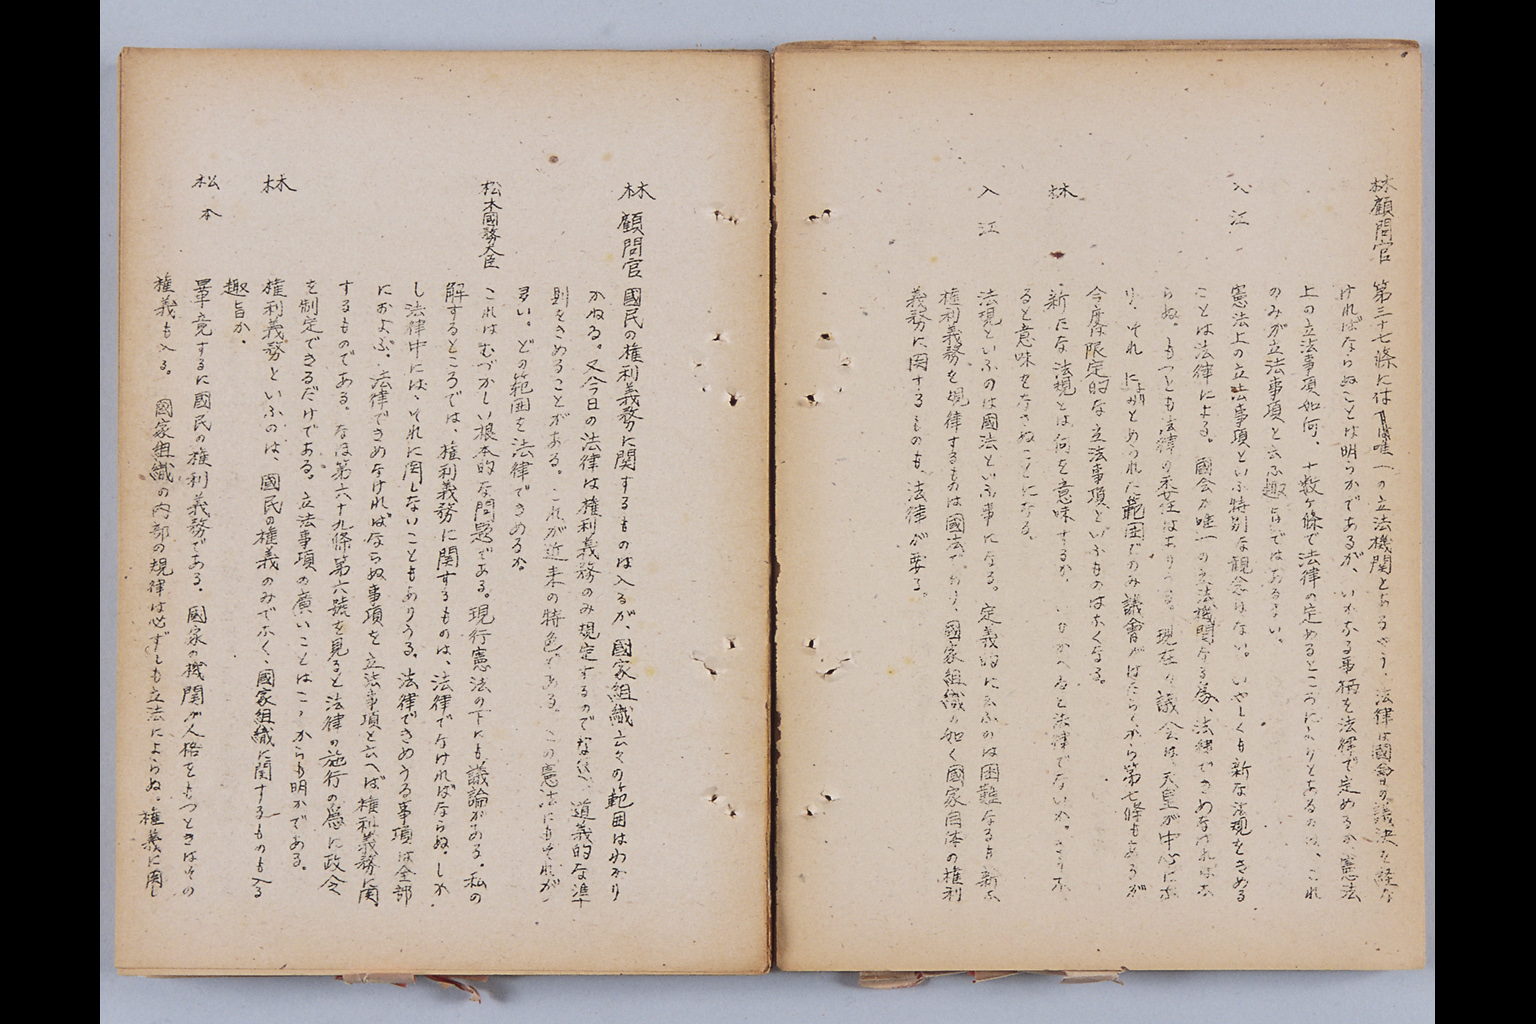 林顧問官 第三十七條には「唯一の立法機関とあるやう、法律は國會の議決を経な
ければならぬことは明らかであるが、いかなる事柄を法律で定めるか、憲法
上の立法事項如何、十数ヶ條で法律の定めるところによりとあるのは、これ
のみが立法事項と云ふ趣旨ではあるまい。
入江 憲法上の立法事項といふ特別な観念はない。いやしくも新な法規をきめる
ことは法律による。國会が唯一の立法機関なる為、法律できめなければな
らぬ。もつとも法律の委任はありうる。現在の議会は、天皇が中心にな
り、それによりみとめられた範囲でのみ議會がはたらくから第七條もあるが
今度は限定的な立法事項といふものはなくなる。
林 新たな法規とは何を意味するか、いひかへると法律でないか。さうな
ると意味をなさぬことになる。
入江 法規といふのは國法といふ事になる。定義的に云ふのは困難なるも新な
権利義務を規律するものは國法であり、國家組織の如く國家自体の権利
義務に関するものも、法律が要る。
林顧問官 國民の権利義務に関するものは入るが、國家組織云々の範囲はわかり
かねる。又今日の法律は権利義務のみ規定するのでなく、道義的な準
則をきめることがある。これが近来の特色である。この憲法にもそれが
多い。どの範囲を法律できめるか。
松本國務大臣 これはむづかしい根本的な問題である。現行憲法の下にも議論がある。私の
解するところでは、権利義務に関するものは、法律でなければならぬ。しか
し法律中には、それに関しないこともありうる。法律できめうる事項は全部
におよぶ、法律できめなければならぬ事項を立法事項と云へば権利義務に関
するものである。なほ第六十九條第六號を見ると法律の施行の為に政令
を制定できるだけである。立法事項の廣いことはこゝからも明かである。
林 権利義務といふのは、國民の権義のみでなく、國家組織に関するものも入る
趣旨か、
松本 畢竟するに國民の権利義務である。國家の機関が人格をもつときはその
権義も入る。國家組織の内部の規律は必ずしも立法によらぬ。権義に関し